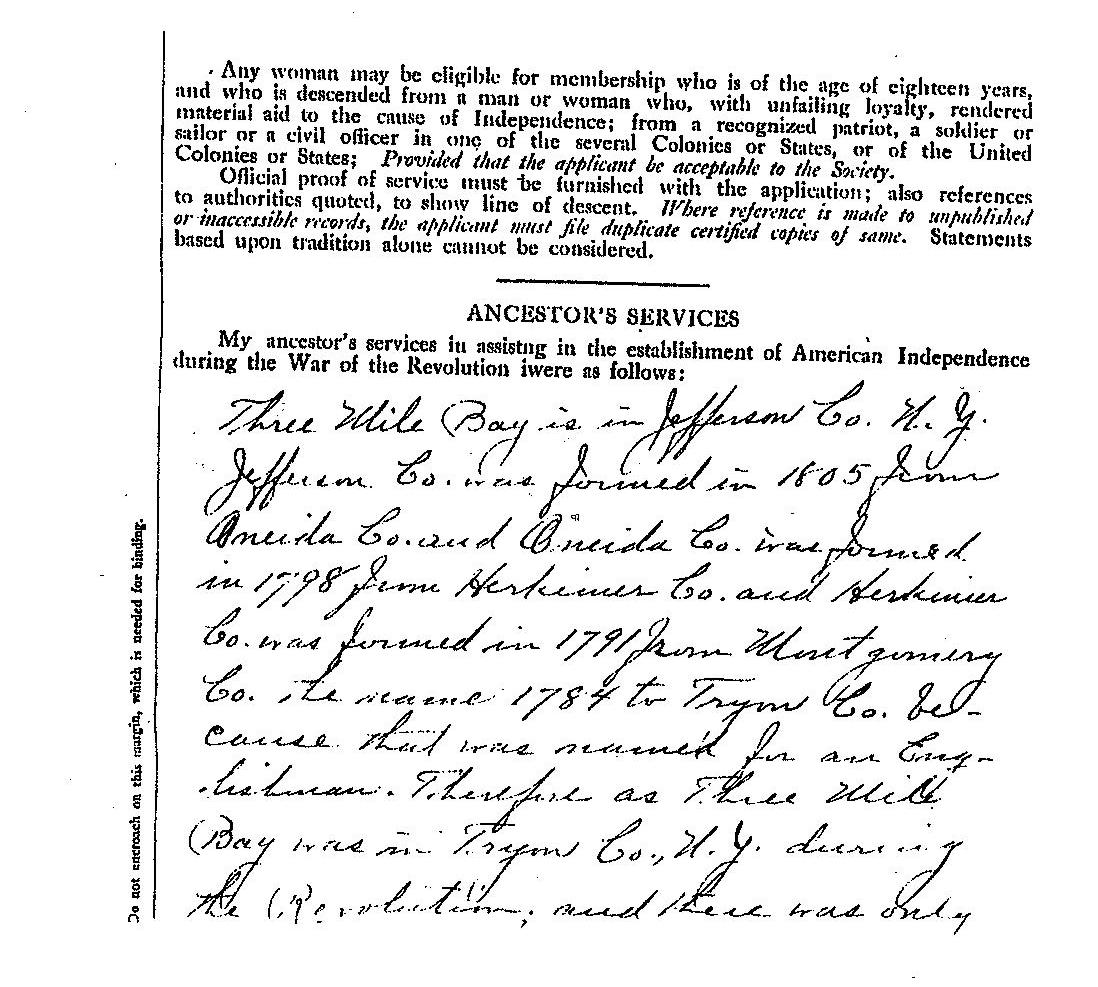 Any woman may be eligible for membership who is of the age of eighteen years,
and who is descended from a man or woman who, with unfailing loyalty, rendered
material aid to the cause of Independence; from a recognized patriot, a soldier or
sailor or a civil officer in one of the several Colonies or States, or of the United
Colonies or States; Provided that the applicant be acceptable to the Society.
Official proof of service must be furnished with the application; also references
to authorities quoted, to show line of descent. Where reference is made to unpublished
or inaccessible records, the applicant must file duplicate certified copies of same. Statements
based upon tradition alone cannot be considered.
ANCESTOR'S SERVICES
My ancestor's services in assistng in the establishment of American Independence
during the War of the Revolution iwere as follows:
Three Mile Bay is in Jefferson Co. N. Y.
Jefferson Co. was formed in 1805 from
Oneida Co. and Oneida Co. was formed
in 1798 from Herkimer Co. and Herkimer
Co. was formed in 1791 from Montgomery
Co. the name 1784 to Tryon Co. be-
cause that was named for an Eng-
lishman. Therefore as Three Mile
Bay was in Tryon Co., N. Y. during
the Revolution, and there was only
Do not encroach on this margin, which is needed for binding.